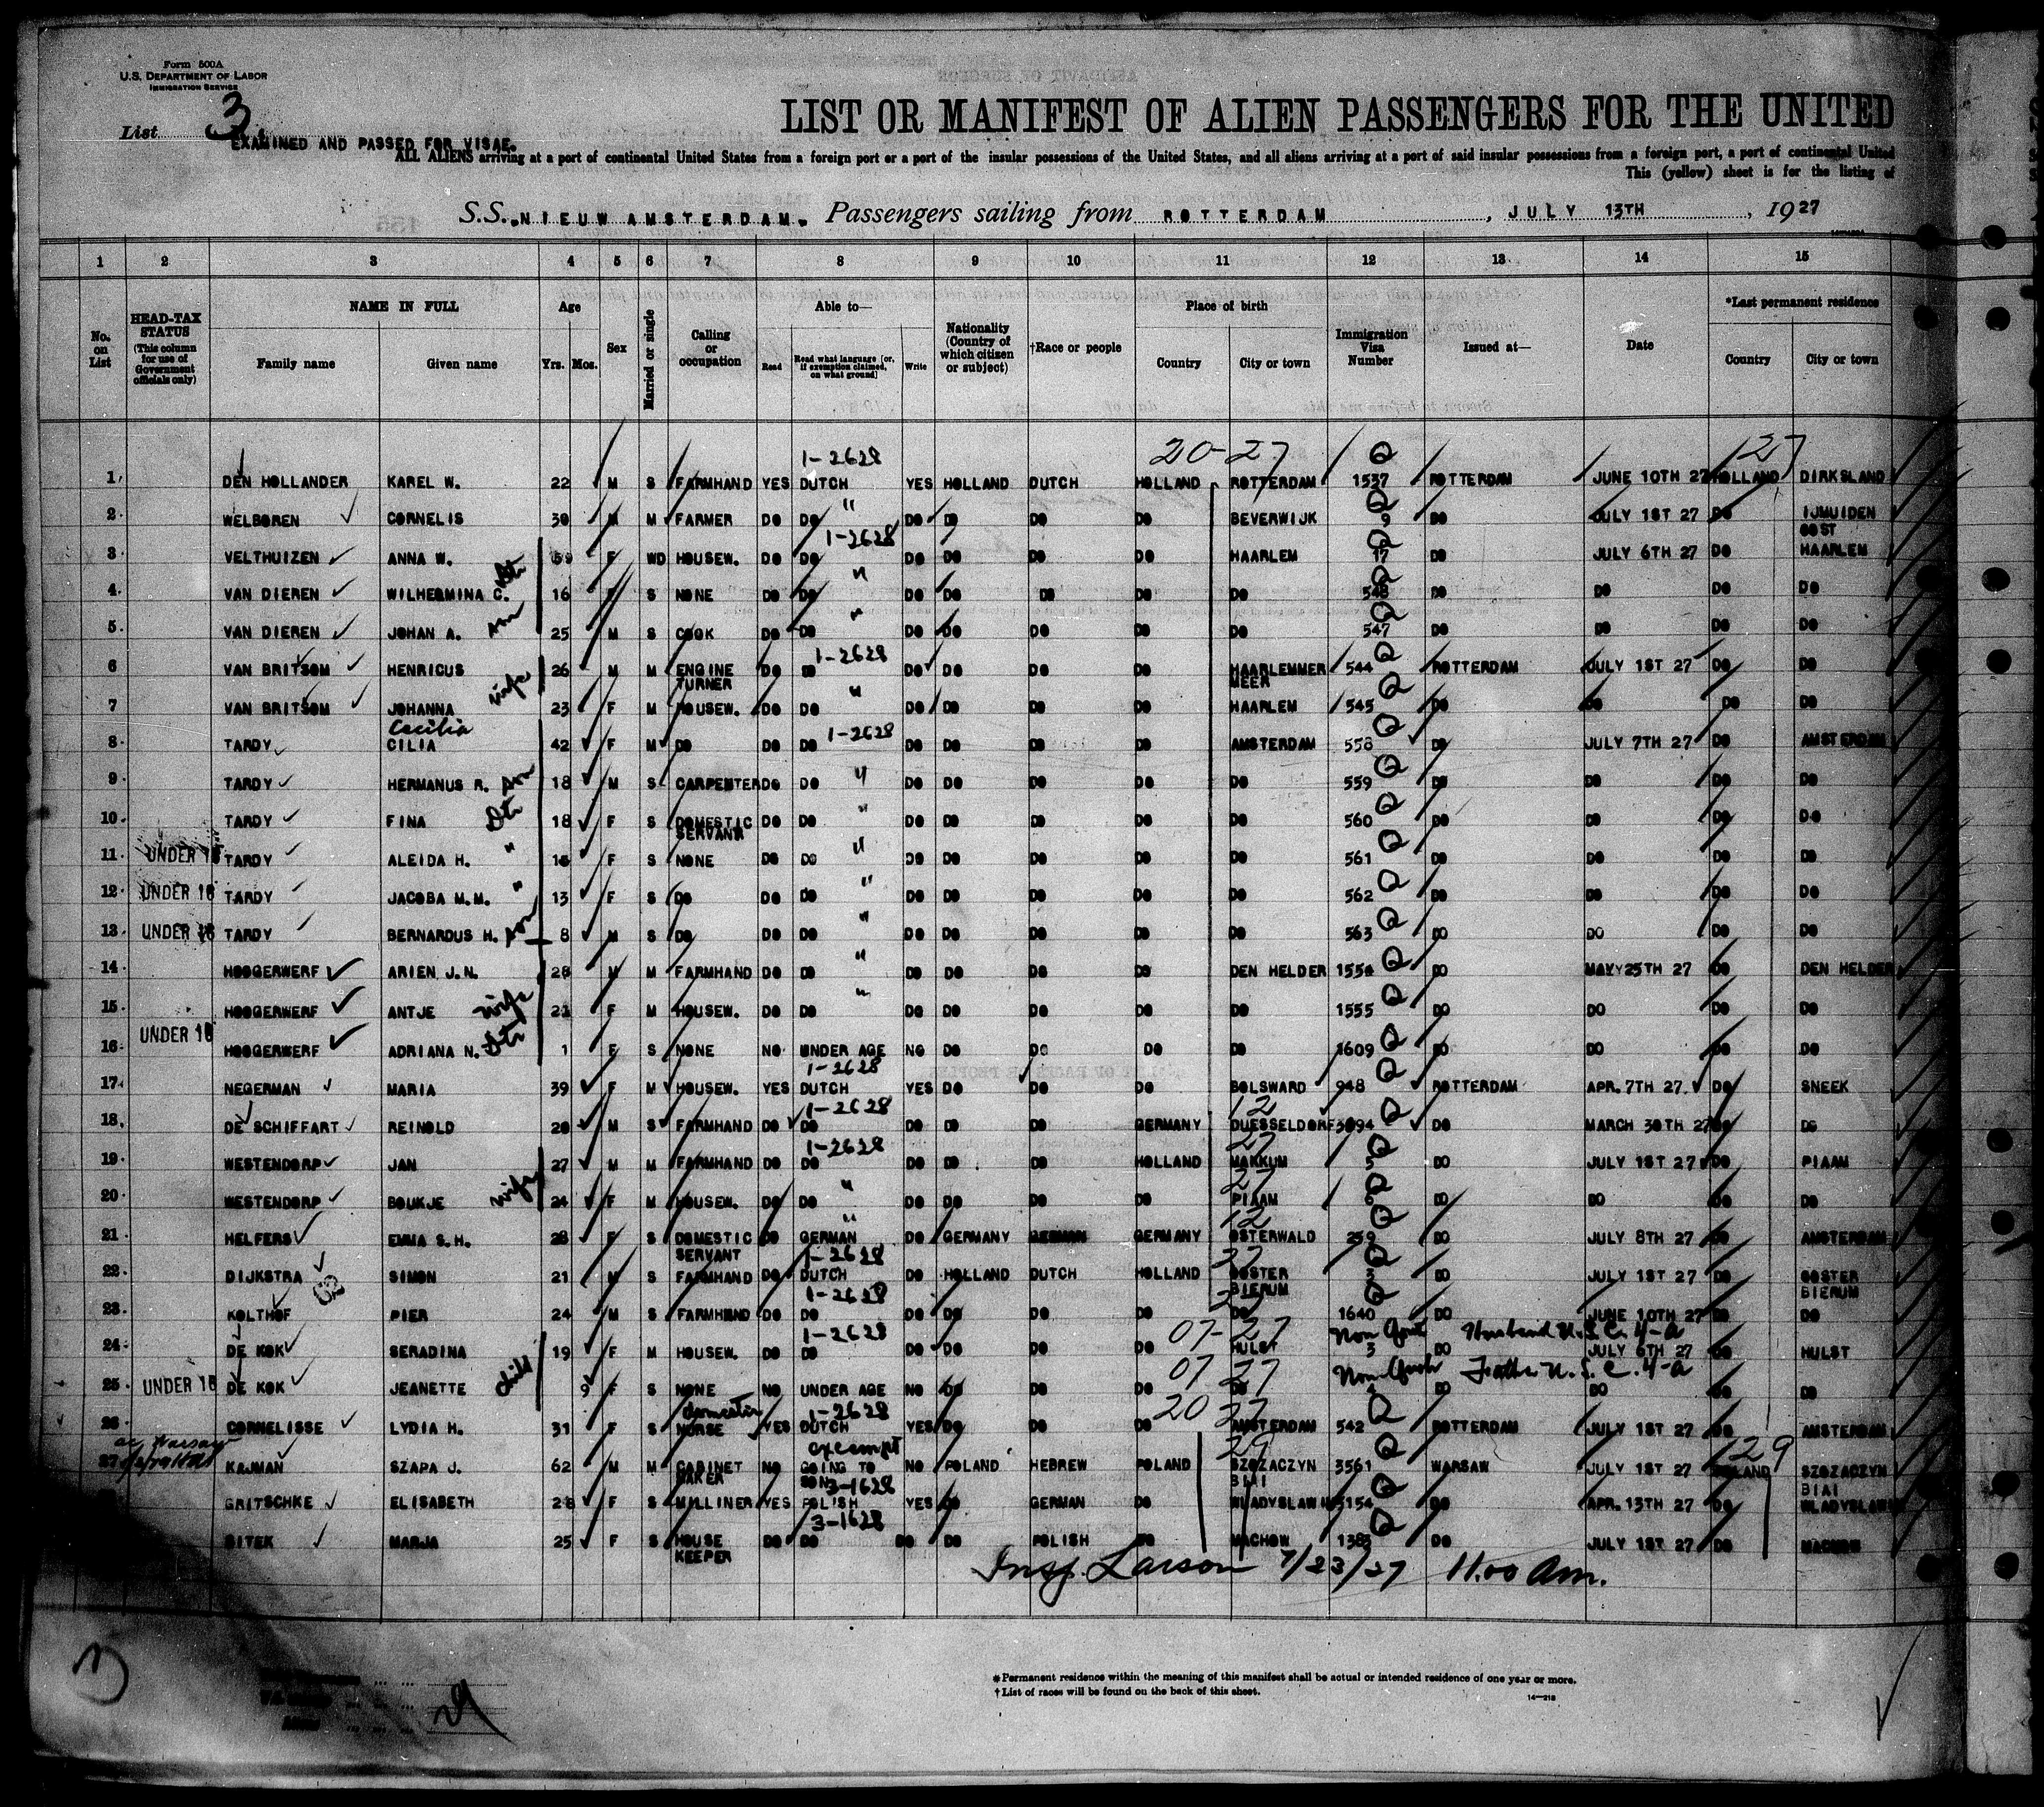 Form 500A
U.S. DEPARTMENT OF LABOR
IMMIGRATION SERVICE
List 3
EXAMINED AND PASSED FOR VISAE.
LIST OR MANIFEST OF ALIEN PASSENGERS FOR THE UNITED
ALL ALIENS arriving at a port of continental United States from a foreign port or a port of the insular possessions of the United States, and all aliens arriving at a port of said insular possessions from a foreign port, a port of continental United
This (yellow) sheet is for the listing of
S.S. "NIEUW AMSTERDAM" Passengers sailing from ROTTERDAM, JULY 13TH, 1927
1 2 3 4 5 6 7 8 9 10 11 12 13 14 15
No. on List
HEAD-TAX STATUS (This column for use of Government officials only)
NAME IN FULL Family name Given name
Age Yrs. Mos.
Sex
Married or single
Calling or occupation
Able to— Read Read what language [or, if exemption claimed, on what ground] Write
Nationality (Country of which citizen or subject)
†Race or people
Place of birth Country City or town
Immigration Visa Number
Issued at—
Date
*Last permanent residence Country City or town
1-2628 20-27 Q 127
1 DEN HOLLANDER KAREL W. 22 M S FARMHAND YES DUTCH YES HOLLAND DUTCH HOLLAND ROTTERDAM 1537 ROTTERDAM JUNE 10TH 27 HOLLAND DIRKSLAND
2 WELBOREN CORNELIS 30 M M FARMER DO DO " DO DO DO DO BEVERWIJK Q 9 DO JULY 1ST 27 DO IJMUIDEN OOST
1-2628
3 VELTHUIZEN ANNA W. 59 F WD HOUSEW. DO DO DO DO DO DO HAARLEM Q 17 DO JULY 6TH 27 DO HAARLEM
4 VAN DIEREN WILHELMINA C. Dtr 16 F S NONE DO DO " DO DO DO DO DO Q 548 DO DO DO DO
5 VAN DIEREN JOHAN A. son 25 M S COOK DO DO " DO DO DO DO DO Q 547 DO DO DO DO
1-2628
6 VAN BRITSOM HENRICUS 26 M M ENGINE TURNER DO DO DO DO DO DO HAARLEMMER MEER 544 Q ROTTERDAM JULY 1ST 27 DO DO
7 VAN BRITSOM JOHANNA wife 23 F M HOUSEW. DO DO " DO DO DO DO HAARLEM 545 Q DO DO DO DO
Cecilia 1-2628
8 TARDY CILIA 42 F M DO DO DO DO DO DO DO AMSTERDAM 558 Q DO JULY 7TH 27 DO AMSTERDAM
9 TARDY HERMANUS R. son 18 M S CARPENTER DO DO " DO DO DO DO DO 559 Q DO DO DO DO
10 TARDY FINA Dtr 18 F S DOMESTIC SERVANT DO DO " DO DO DO DO DO 560 Q DO DO DO DO
11 UNDER 16 TARDY ALEIDA H. " F S NONE DO DO " DO DO DO DO DO 561 Q DO DO DO DO
12 UNDER 16 TARDY JACOBA M.M. " 13 F S DO DO DO " DO DO DO DO DO 562 Q DO DO DO DO
13 UNDER 16 TARDY BERNARDUS H. son 8 M S DO DO DO " DO DO DO DO DO 563 Q DO DO DO DO
14 HOOGERWERF ARIEN J.N. 28 M M FARMHAND DO DO " DO DO DO DO DEN HELDER 1554 Q DO MAY 25TH 27 DO DEN HELDER
15 HOOGERWERF ANTJE wife 21 F M HOUSEW. DO DO " DO DO DO DO DO 1555 Q DO DO DO DO
16 UNDER 16 HOOGERWERF ADRIANA N. Dtr 1 F S NONE NO UNDER AGE NO DO DO DO DO 1609 Q DO DO DO DO
1-2628
17 NEGERMAN MARIA 39 F M HOUSEW. YES DUTCH YES DO DO DO BOLSWARD 948 Q ROTTERDAM APR. 7TH 27 DO SNEEK
1-2628 12
18 DE SCHIFFART REINOLD 20 M S FARMHAND DO DO DO DO DO GERMANY DUESSELDORF 3094 Q DO MARCH 30TH 27 DO DO
1-2628 27
19 WESTENDORP JAN 27 M M FARMHAND DO DO DO DO DO HOLLAND MAKKUM 5 Q DO JULY 1ST 27 DO PIAAM
27
20 WESTENDORP BOUKJE wife 24 F M HOUSEW. DO DO " DO DO DO DO PIAAM 6 Q DO DO DO DO
12
21 HELFERS EMMA S.H. 28 F S DOMESTIC SERVANT DO GERMAN " DO GERMANY GERMAN GERMANY OSTERWALD 259 Q DO JULY 8TH 27 DO AMSTERDAM
1-2628 27
22 DIJKSTRA SIMON 21 M S FARMHAND DO DUTCH DO HOLLAND DUTCH HOLLAND OOSTER BIERUM 3 Q DO JULY 1ST 27 DO OOSTER BIERUM
1-2628 27
23 KOLTHOF PIER 24 M S FARMHAND DO DO DO DO DO DO DO 1640 Q DO JUNE 10TH 27 DO DO
1-2628 07-27 Non Quota Husband U.S.C. 4-a
24 DE KOK SERADINA 19 F M HOUSEW. DO DO DO DO DO DO HULST 3 DO JULY 6TH 27 DO HULST
07 27 Non Quota Father U.S.C. 4-a
25 UNDER 16 DE KOK JEANETTE child 9 F S NONE NO UNDER AGE NO DO DO DO DO DO DO DO DO
domestic 1-2628 20 27
26 CORNELISSE LYDIA H. 31 F S NURSE YES DUTCH YES DO DO DO AMSTERDAM 542 Q ROTTERDAM JULY 1ST 27 DO AMSTERDAM
Warsaw exempt 29 129
27 KAJMAN SZAPA J. 62 M M CABINET MAKER NO GOING TO SON NO POLAND HEBREW POLAND SZCZACZYN BIAI 3561 Q WARSAW JULY 1ST 27 POLAND SZCZACZYN BIAI
3-1628
GRITSCHKE ELISABETH 28 F S MILLINER YES POLISH YES DO GERMAN DO 5154 Q DO APR. 13TH 27 DO
3-1628
SITEK MARJA 25 F S HOUSE KEEPER DO DO DO DO POLISH DO MACHOW 1383 Q DO JULY 1ST 27 DO MACHOW
Insp. Larson 7/23/27 11.00 Am.
*Permanent residence within the meaning of this manifest shall be actual or intended residence of one year or more.
†List of races will be found on the back of this sheet.
14—218
29